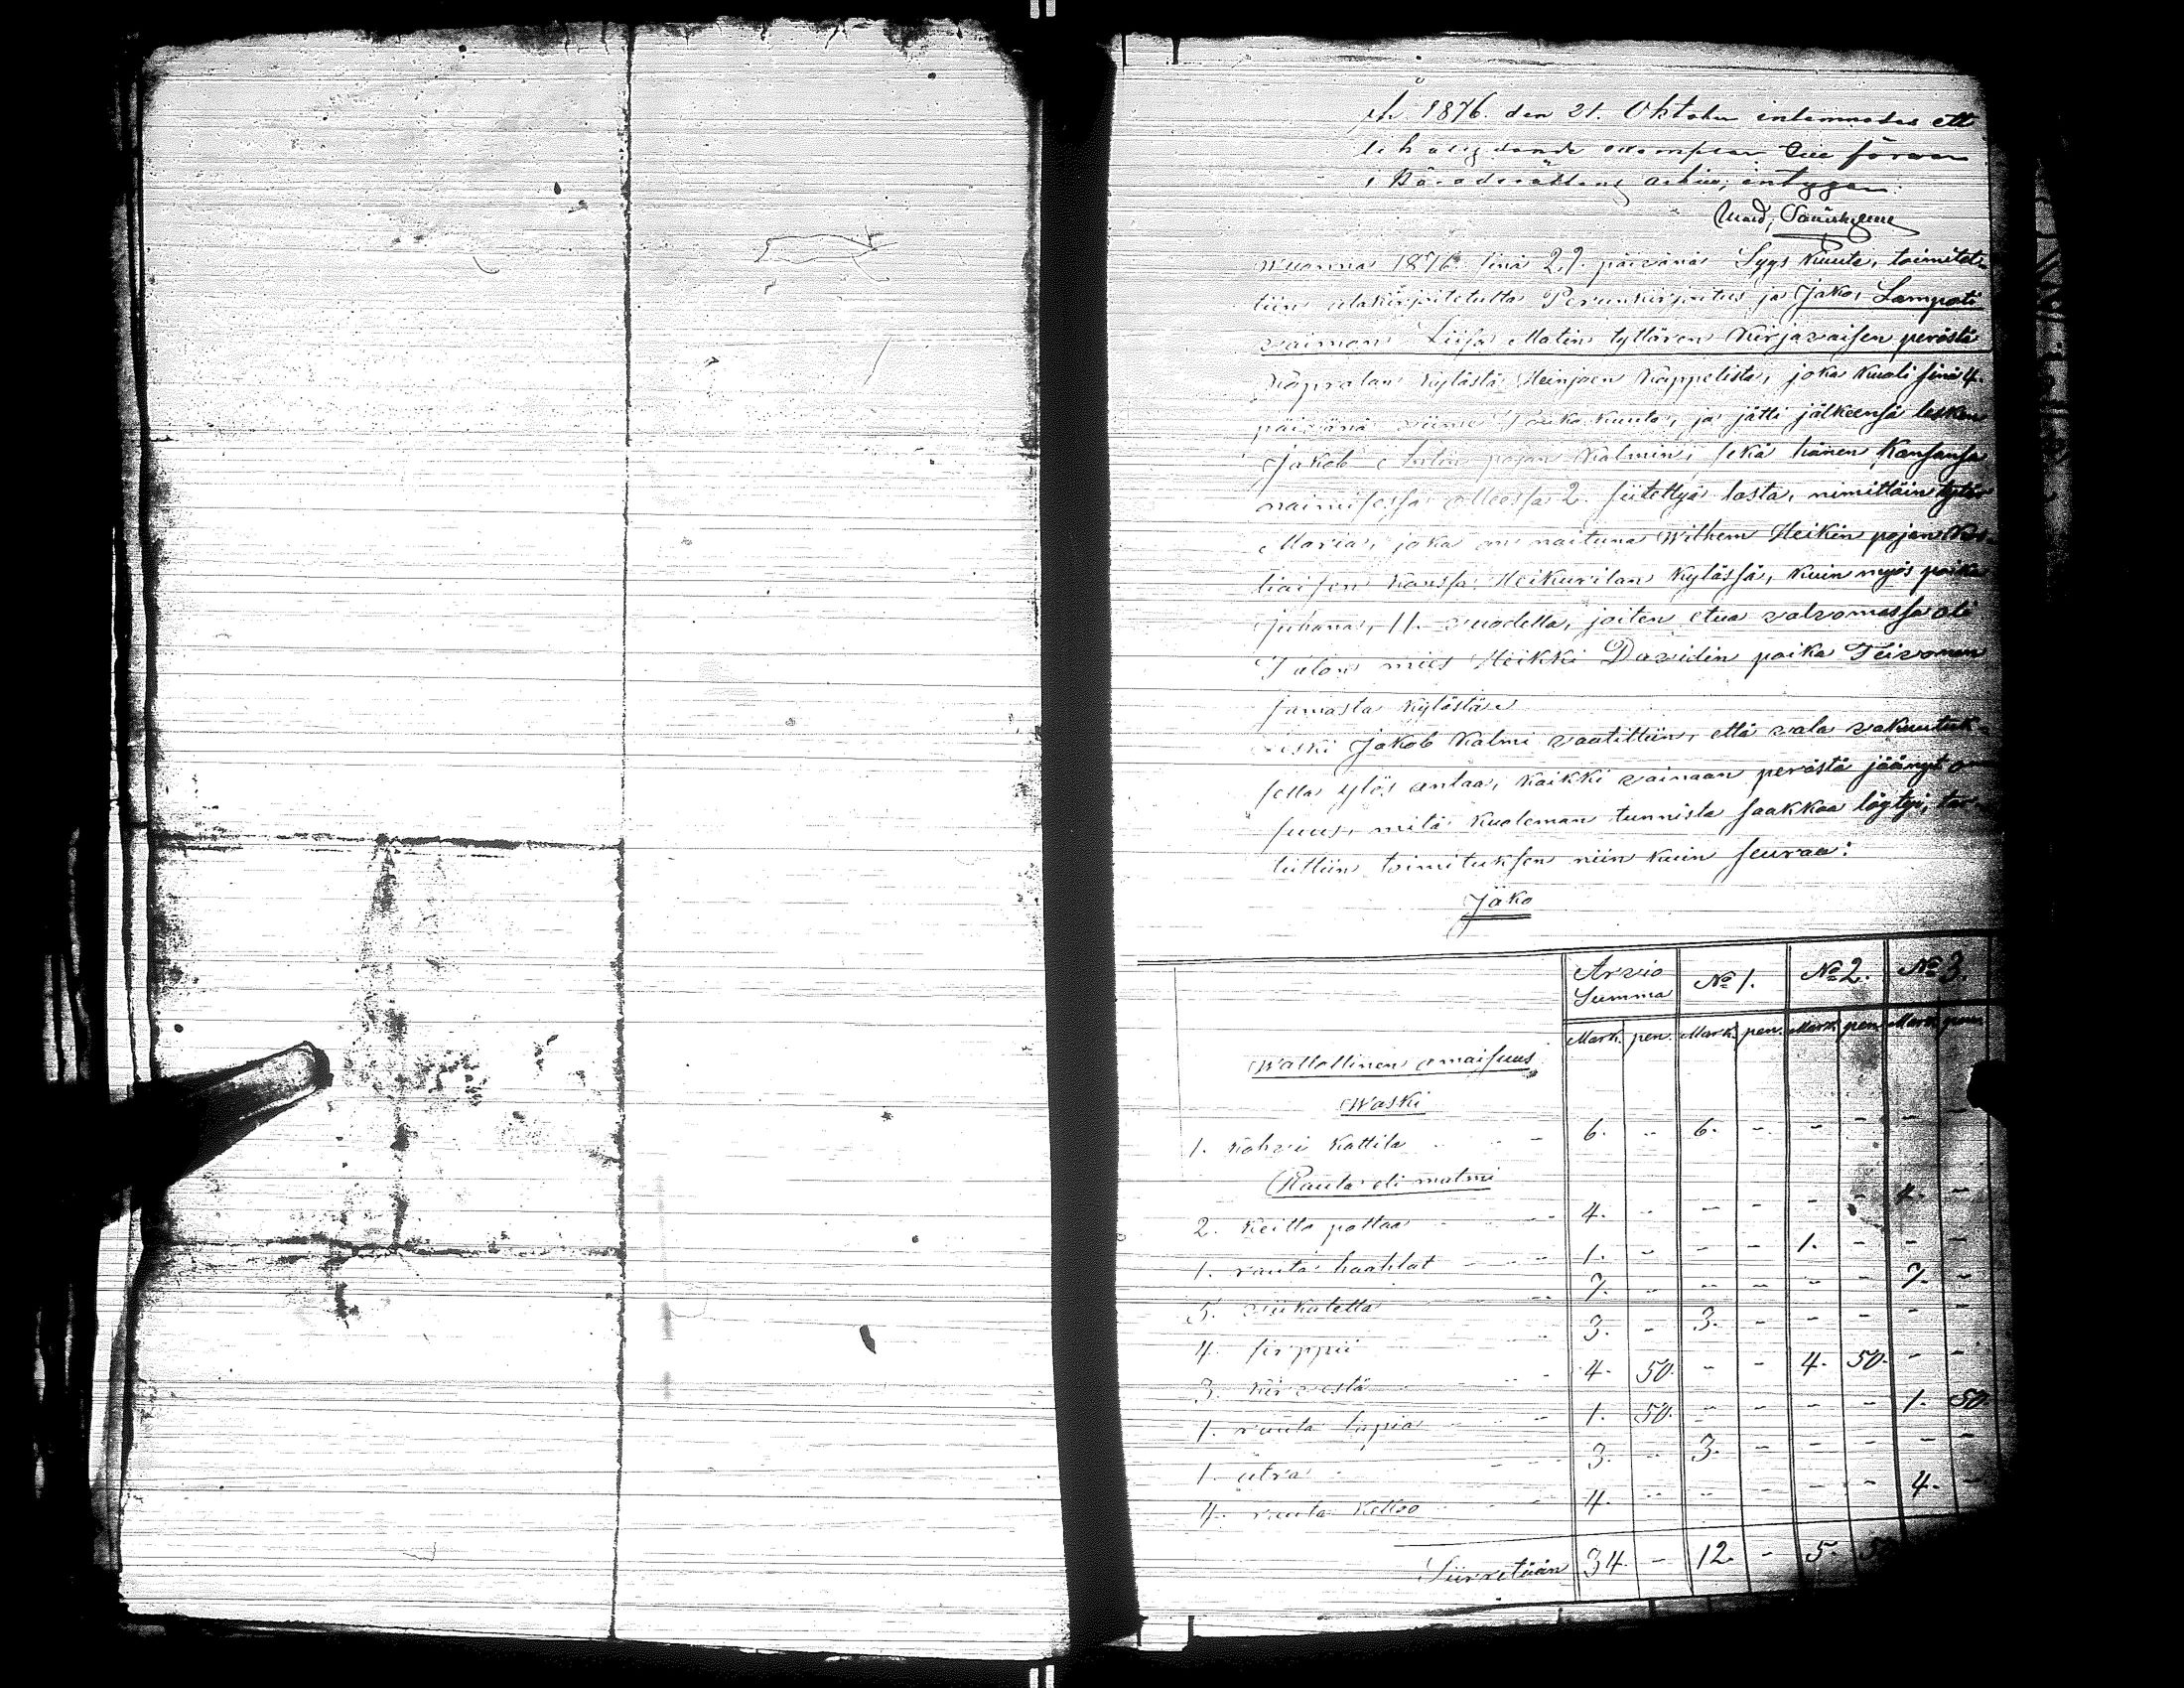 År 1876 den 21. Oktober inlemnades ett
exemplar för
i arkiv, intygar
Wuonna 1876 sinä 27. päivänä Syys kuuta, toimitet-
tiin alakirjoitetulta Perunkirjoitus ja Jako, Lampoti
vaimon Liisa Matin tyttären Kirjavaisen perästä
Käpralan kylästä Heinjoen Kappelista, joka kuoli sinä 4.
päivänä viime kuuta, ja jätti jälkeensä lesken
Jakob Antin pojan Kalmin, sekä hänen kansansa
naimisessa 2. siitettyä lasta, nimittäin tytär
Maria, joka on naituna Wilhem Heikin pojan
kanssa Heikurilan kylässä, kuin myös poika
Juhana, 11. vuodella, joiten etua valvomassa oli
Talon mies Heikki Davidin poika Teivonen
samasta kylästä
Leski Jakob Kalmi vaatittiin, että vala vakuutuk-
sella ylös antaa, kaikki vainaan perästä jäänyt om
suus, mitä kuoleman tunnista saakkaa löytyi,
toimituksen niin kuin seuraa:
Jako
Arvio Summa № 1. № 2. № 3.
Mark. pen. Mark. pen. Mark. pen. Mark. pen.
Wallollinen omaisuus
Waski
1. kahvi kattila - - 6. - 6. - - - - -
Rauta eli malmi
2. keitto pataa - - 4. - - - - - 4. -
1. rauta haahlat - - 1. - - - 1. - - -
5. viikatetta - - 7. - - - - - 7. -
4. sirppii - - 3. - 3. - - - - -
3. kirvestä - - 4. 50. - - 4. 50. - -
1. rauta lapia - - 1. 50. - - - - 1. 50.
1. atra - - 3. - 3. - - - - -
4. rauta - - 4. - - - - - 4. -
Siirretään 34 - 12. - 5.